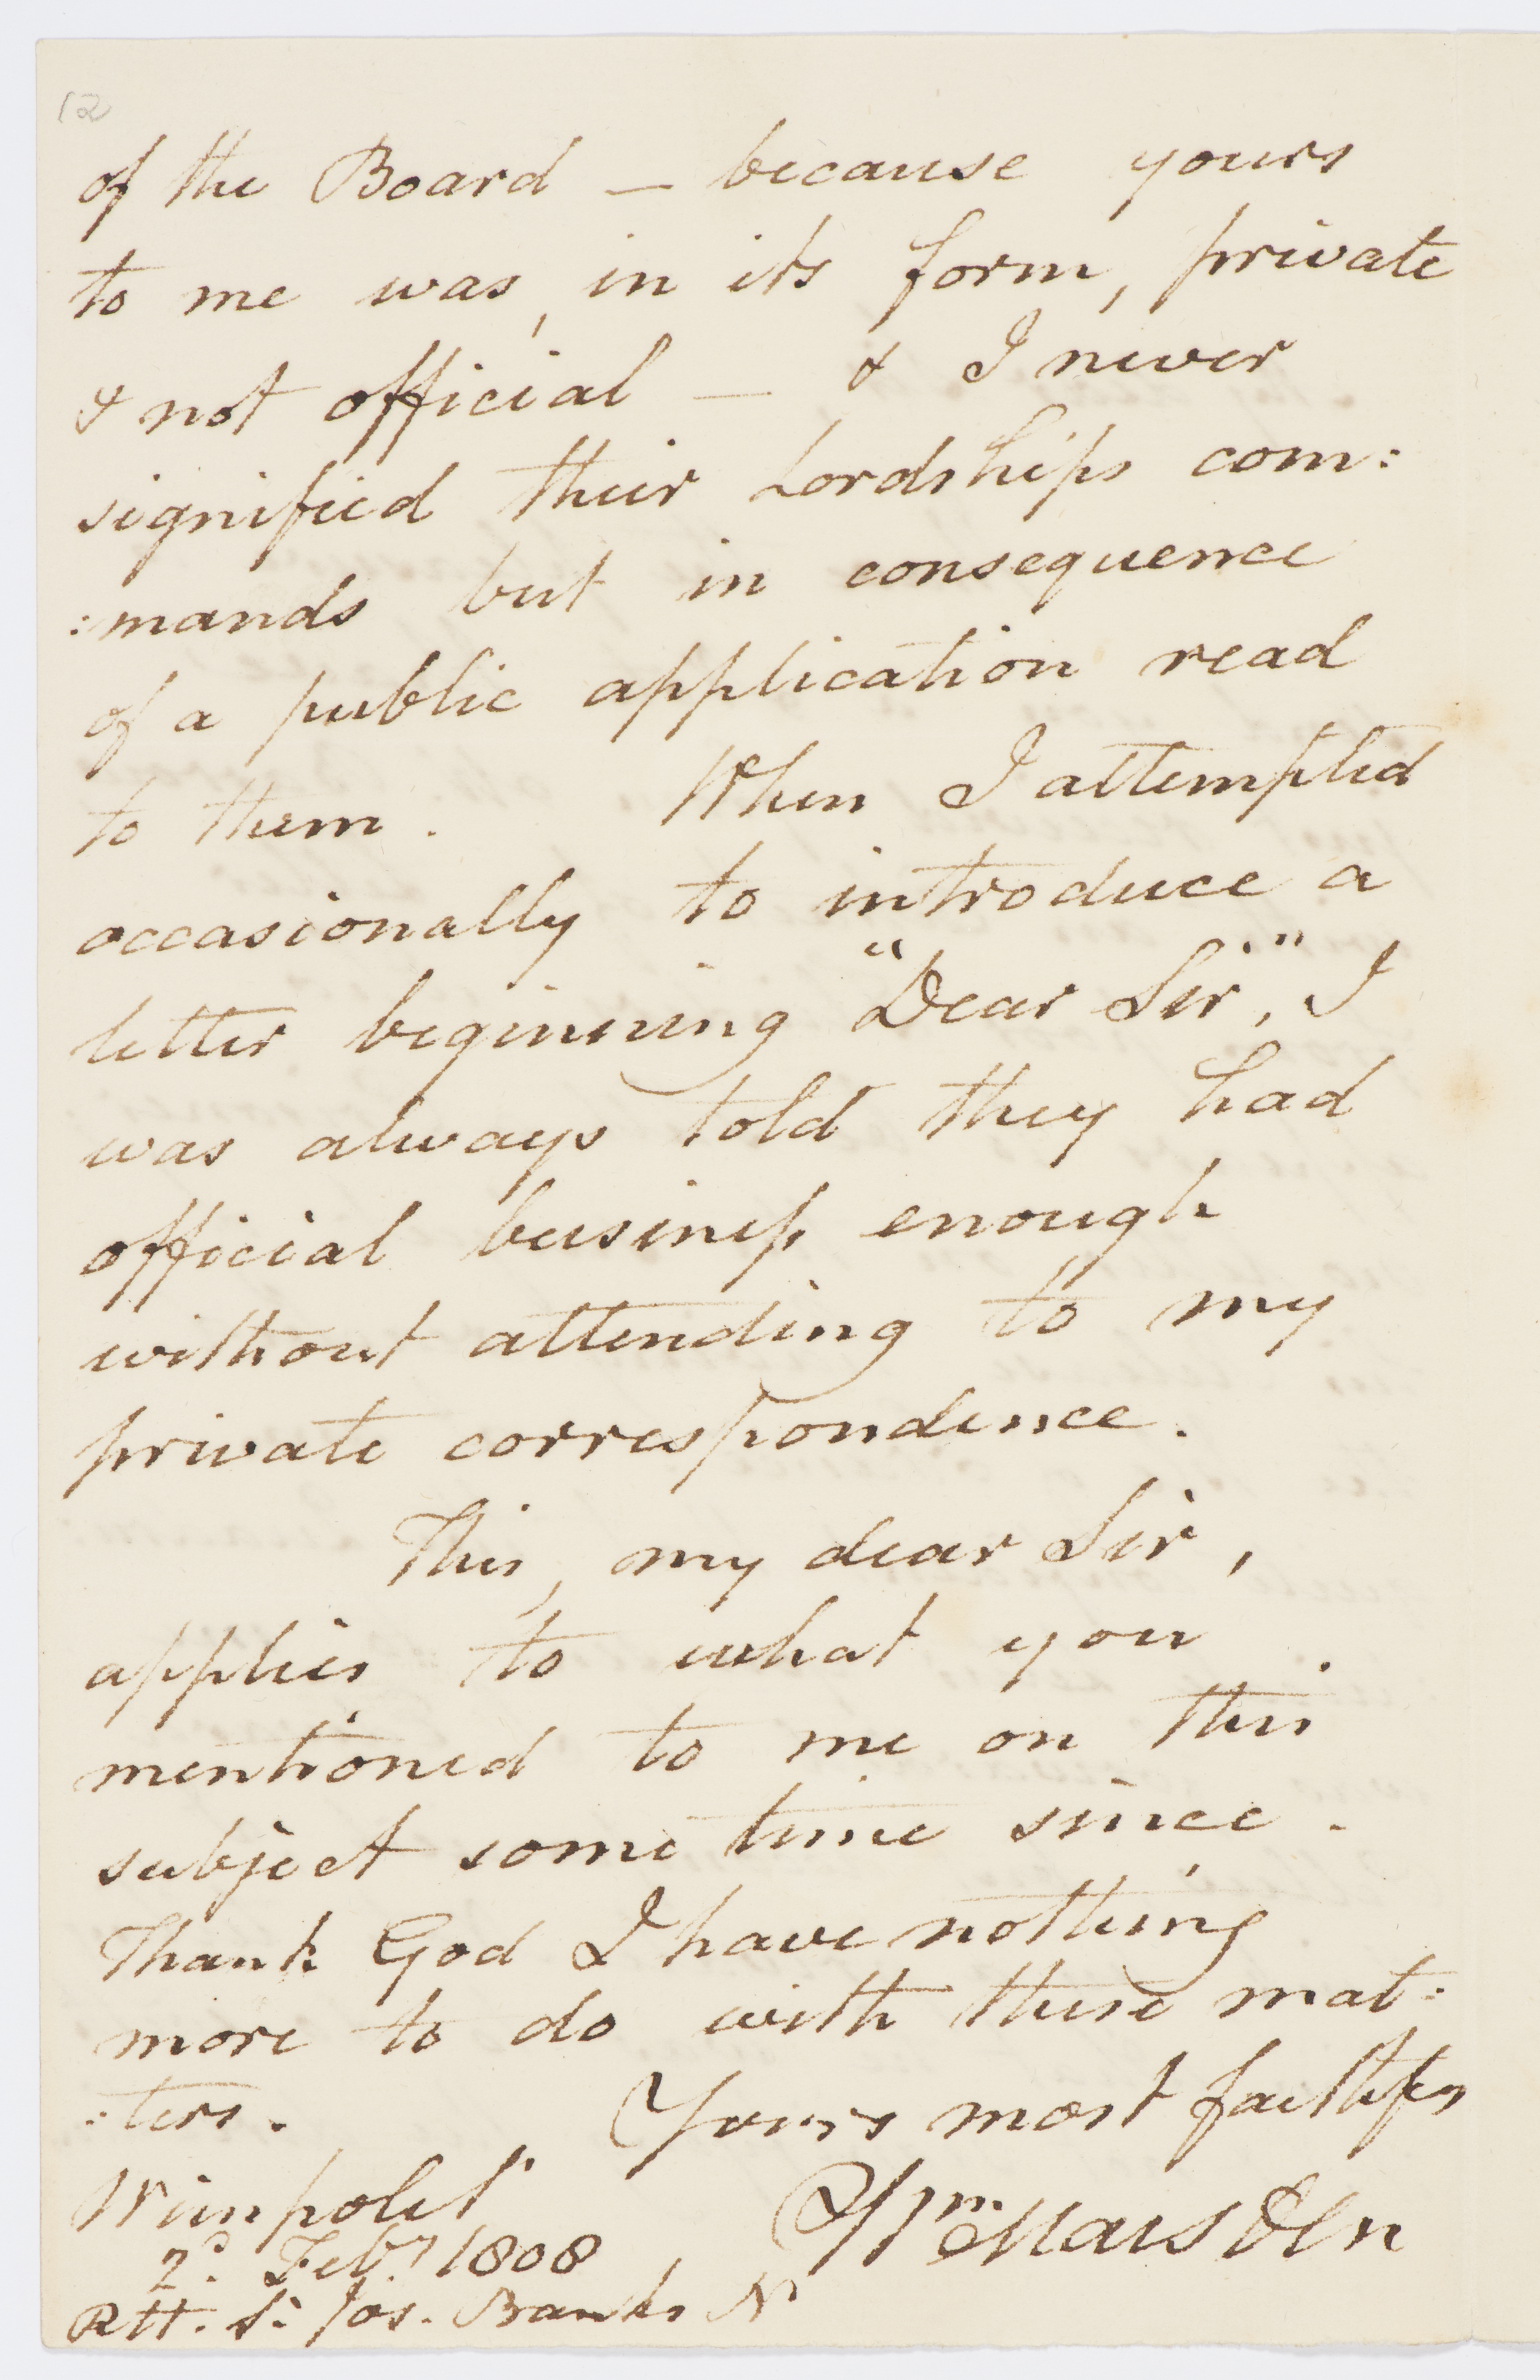 12
of the Board — because yours
to me was, in its form, private
& not official — & I never
signified their Lordships com:
:mands but in consequence
of a public application read
to them. When I attempted
occasionally to introduce a
letter beginning "Dear Sir", I
was always told they had
official business enough
without attending to my
private correspondence.
This, my dear Sir,
applies to what you
mentioned to me on this
subject some time since.
Thank God I have nothing
more to do with these mat:
:ters. Yours most faithfy
Wimpole St
2d. Feby 1808 Wm. Marsden
Rtt. Sr. Jos. Banks